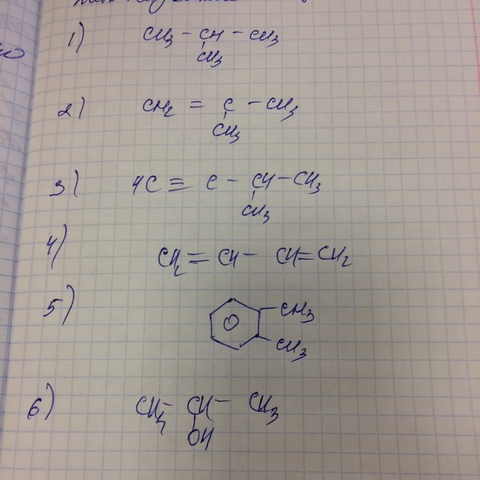 1) CH3 - CH - CH3
CH3
2) CH2 = C - CH3
CH3
3) HC ≡ C - CH - CH3
CH3
4) CH2 = CH - CH = CH2
5) CH3
CH3
6) CH3 - CH - CH3
OH